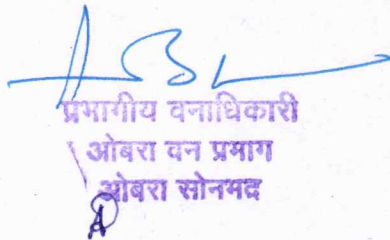 प्रभागीय वनाधिकारी
ओबरा वन प्रभाग
ओबरा सोनभद्र